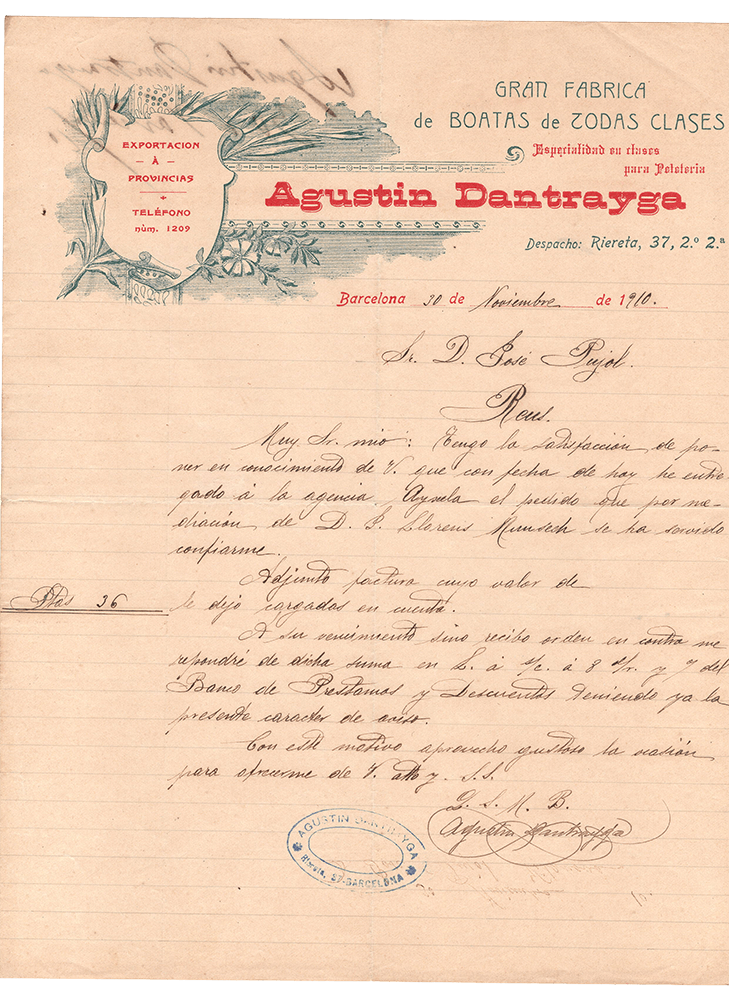 GRAN FABRICA
de BOATAS de TODAS CLASES
Especialidad en clases
para Peleteria
Agustin Dantrayga
Despacho: Riereta, 37, 2.º 2.ª
EXPORTACION
Á
PROVINCIAS
TELÉFONO
núm. 1209
Barcelona 30 de Noviembre de 1910.
Sr. D. José Pujol.
Reus.
Muy Sr. mio: Tengo la satisfacción de po-
ner en conocimiento de V. que con fecha de hoy he entre
gado á la agencia el pedido que por me-
diación de D. J. Llorens se ha servido
confiarme.
Adjunto factura cuyo valor de
Ptas 36
le dejo cargadas en cuenta.
A su vencimiento sino recibo orden en contra me
repondré de dicha suma en L. á s/c. á 8 d/v. y 7 del
Banco de Prestamos y Descuentos teniendo ya la
presente caracter de aviso.
Con este motivo aprovecho gustoso la ocasión
para ofrecerme de V. atto y. S.S.
Q. S. M. B.
Agustin Dantrayga
AGUSTIN DANTRAYGA
Riereta, 37-BARCELONA